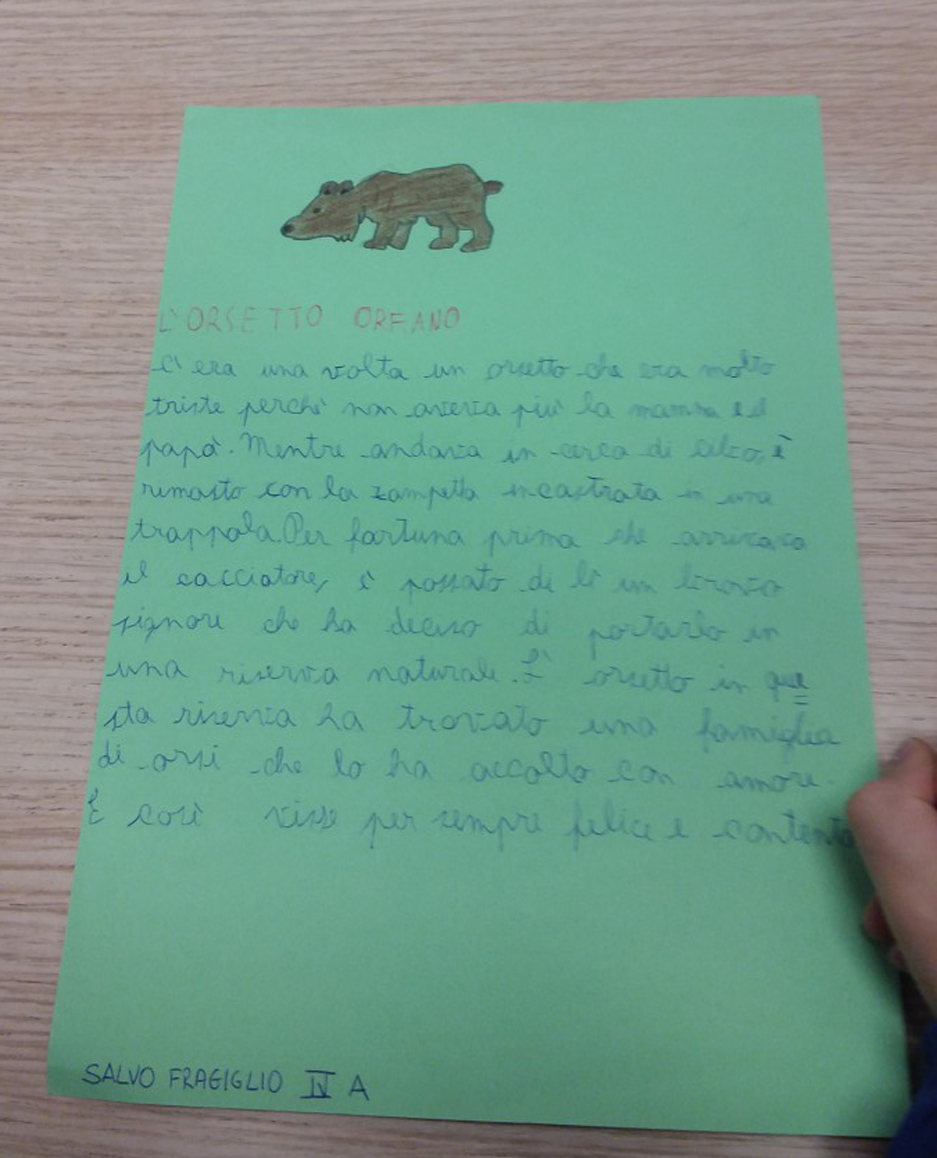 L'ORSETTO ORFANO
C'era una volta un orsetto che era molto
triste perché non aveva più la mamma e il
papà. Mentre andava in cerca di cibo, è
rimasto con la zampetta incastrata in una
trappola. Per fortuna prima che arrivava
il cacciatore, è passato di lì un bravo
signore che ha deciso di portarlo in
una riserva naturale. L'orsetto in que
sta riserva ha trovato una famiglia
di orsi che lo ha accolto con amore.
E così visse per sempre felice e contento
SALVO FRAGIGLIO IV A